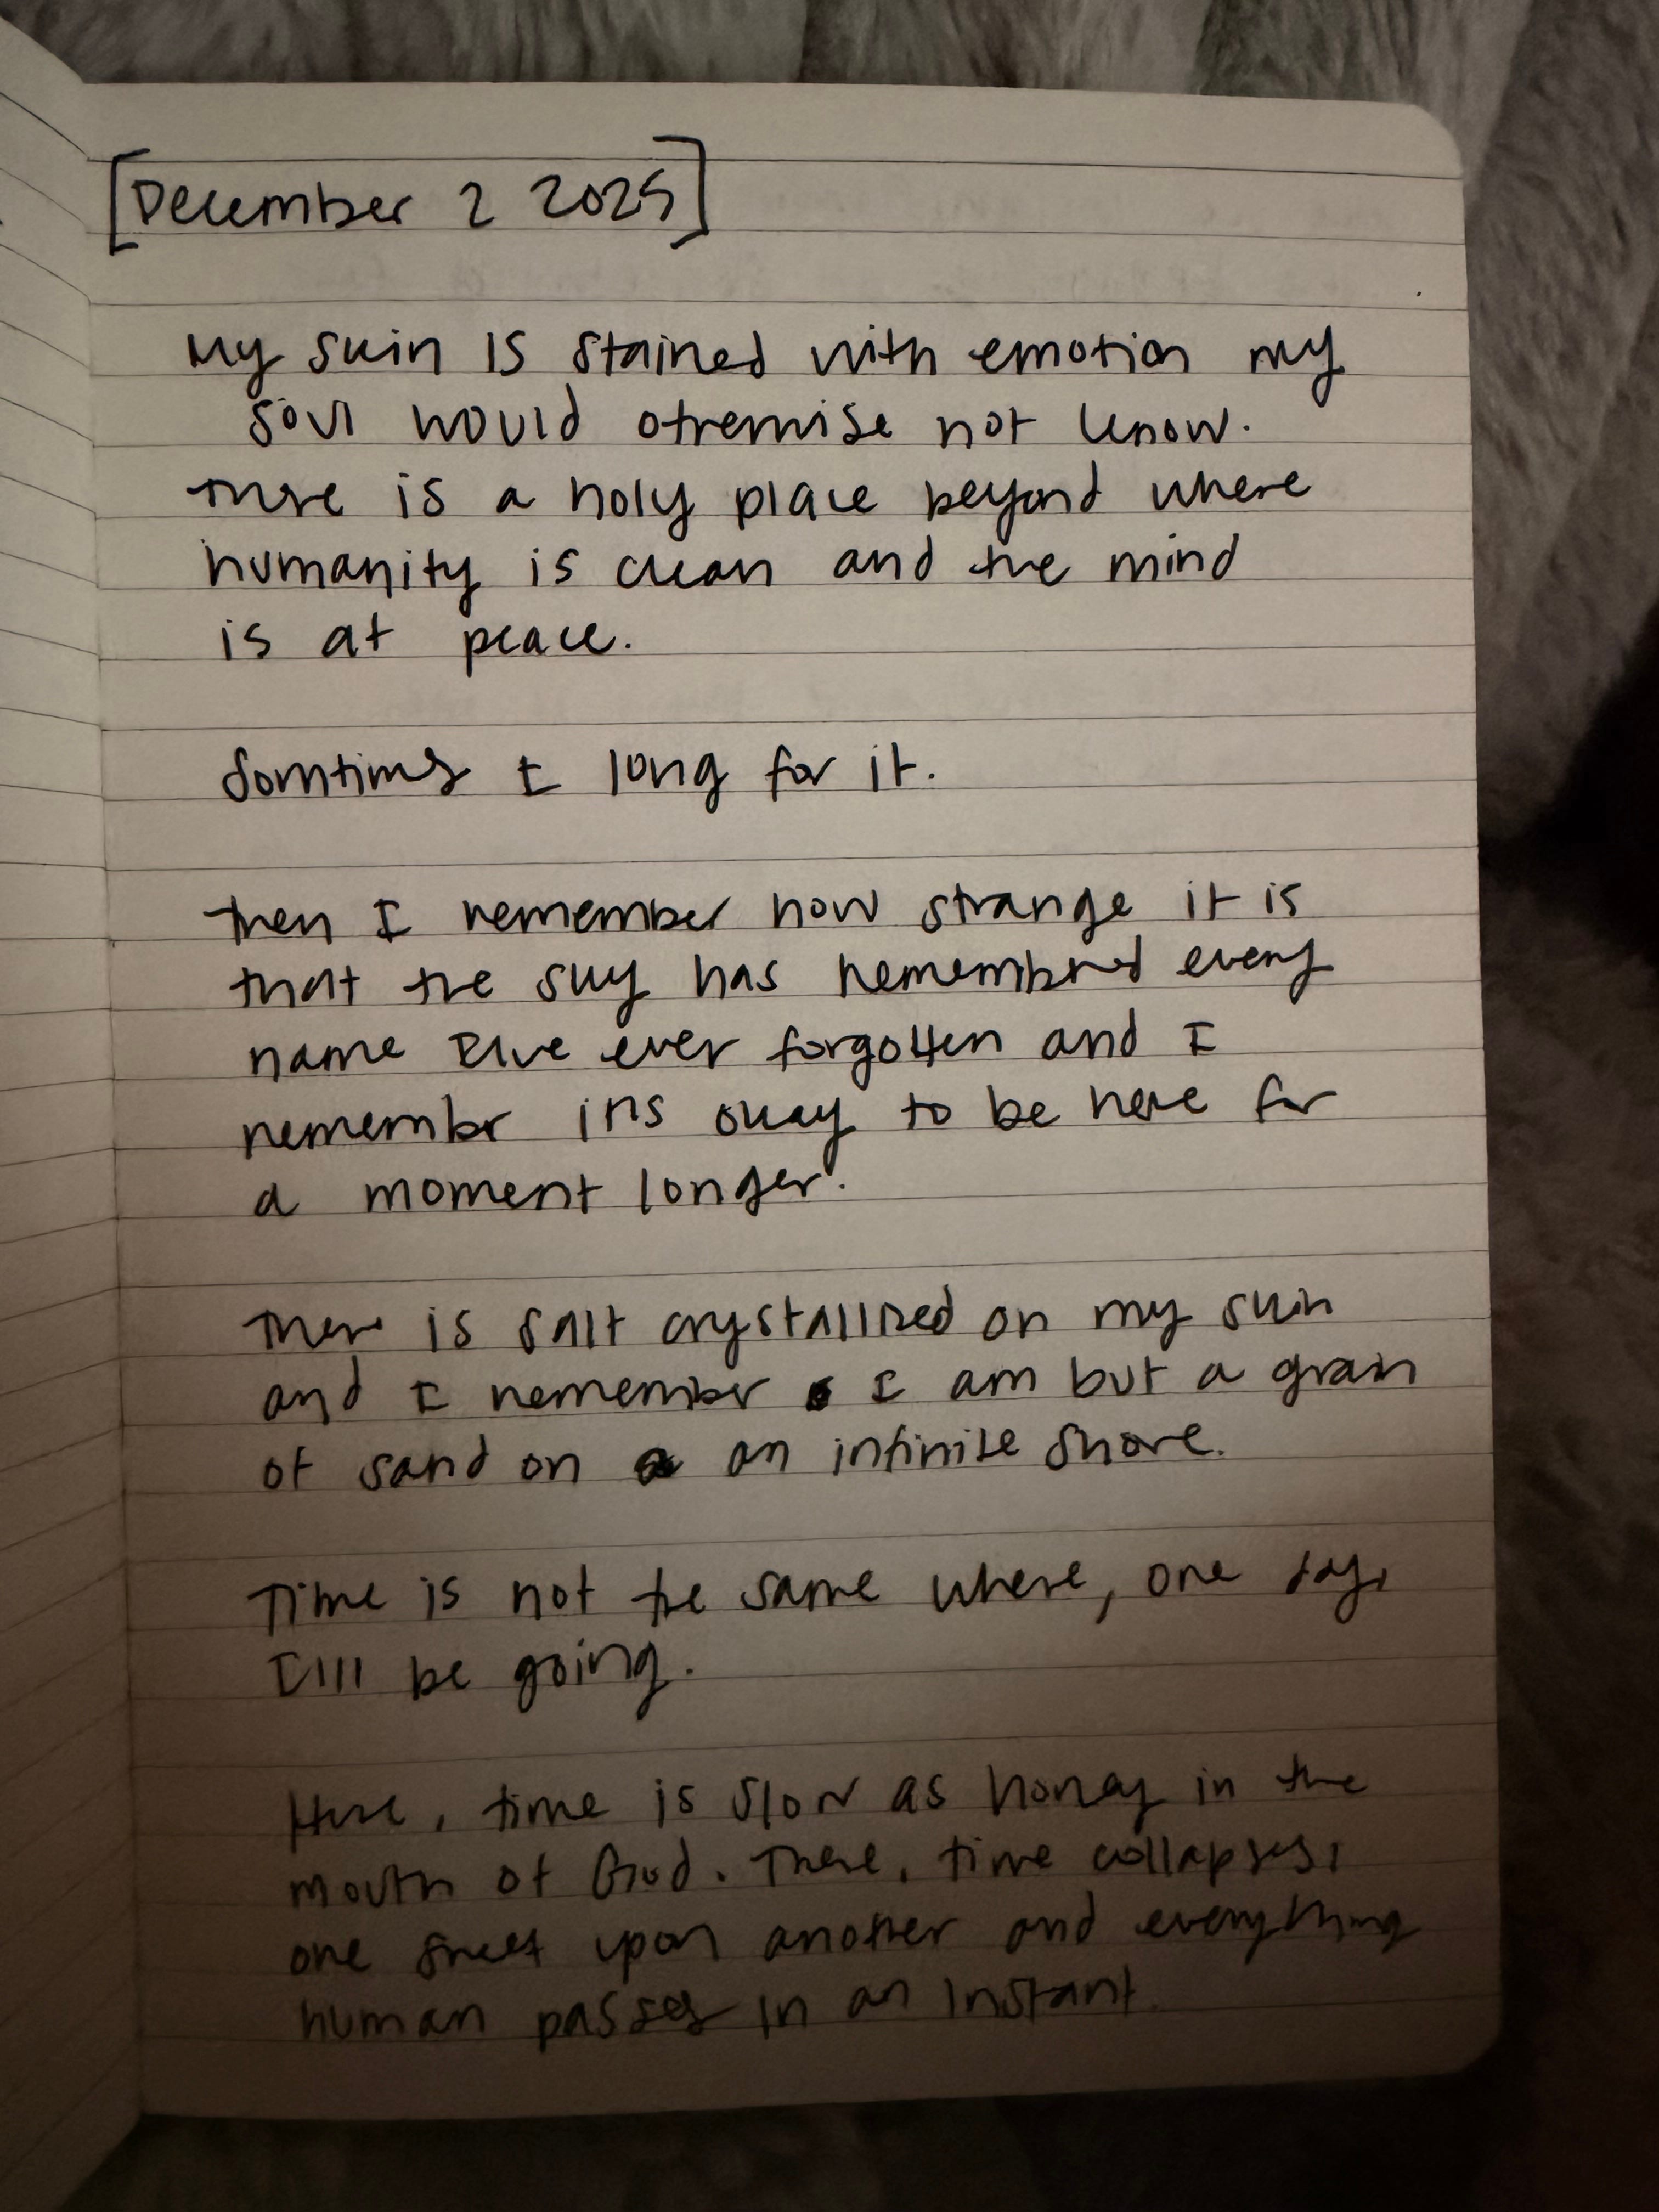 [December 2 2025]
My skin is stained with emotion my
soul would otherwise not know.
There is a holy place beyond where
humanity is clean and the mind
is at peace.
Somtimes I long for it.
Then I remember how strange it is
that the sky has remembered every
name I've ever forgotten and I
remember it's okay to be here for
a moment longer.
There is salt crystallized on my skin
and I remember I am but a grain
of sand on an infinite shore.
Time is not the same where, one day,
I'll be going.
Here, time is slow as honey in the
mouth of God. There, time collapses,
one sheet upon another and everything
human passes in an instant.